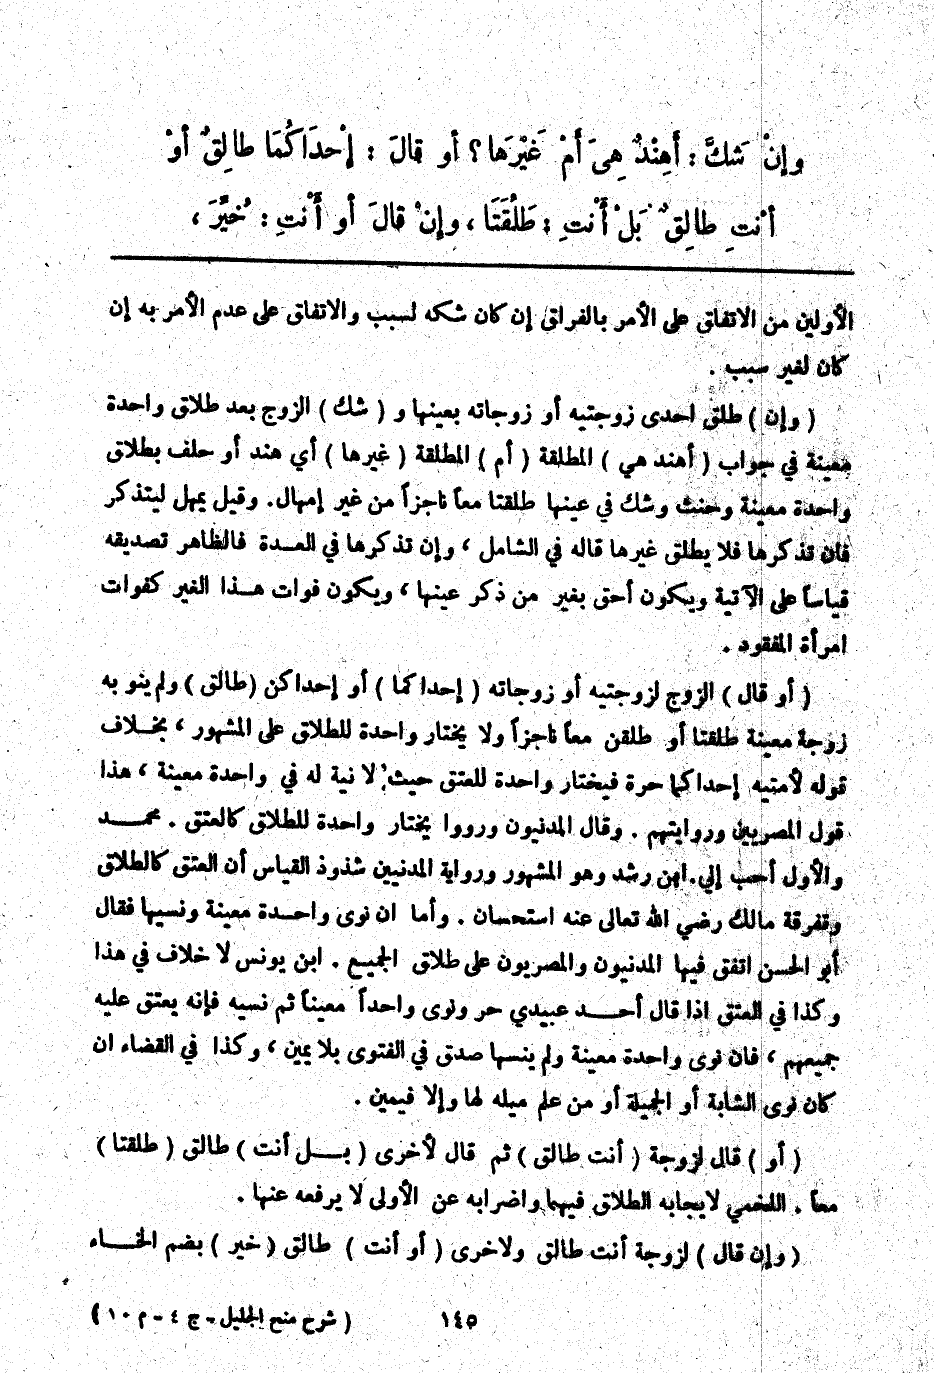 وإنْ شَكَّ : أَهِنْدٌ هِيَ أَمْ غَيْرَها ؟ أو قالَ : إْحدَاكُمَا طالِقٌ أوْ
أنْتِ طالِقٌ بَلْ أَنْتِ : طَلُقَتَا ، وإنْ قالَ أو أَنْتِ : خُيِّرَ ،
الأولين من الاتفاق على الأمر بالفراق إن كان شكه لسبب والاتفاق على عدم الأمر به إن
كان لغير سبب .
( وإن ) طلق احدى زوجتيه أو زوجاته بعينها و ( شك ) الزوج بعد طلاق واحدة
معينة في جواب ( أهند هي ) المطلقة ( أم ) المطلقة ( غيرها ) أي هند أو حلف بطلاق
واحدة معينة وحنث وشك في عينها طلقتا معاً ناجزاً من غير إمهال. وقيل يمهل ليتذكر
فان تذكرها فلا يطلق غيرها قاله في الشامل ، وإن تذكرها في العـدة فالظاهر تصديقه
قياساً على الآتية ويكون أحق بغير من ذكر عينها ، ويكون فوات هـذا الغير كفوات
امرأة المفقود .
( أو قال ) الزوج لزوجتيه أو زوجاته ( إحداكما ) أو إحداكن (طالق ) ولم ينو به
زوجة معينة طلقتا أو طلقن معاً ناجزاً ولا يختار واحدة للطلاق على المشهور ، بخـلاف
قوله لأمتيه إحداكما حرة فيختار واحدة للعتق حيث لا نية له في واحدة معينة ، هذا
قول المصريين وروايتهم . وقال المدنيون ورووا يختار واحدة للطلاق كالعتق . محمـــد
والأول أحب إلي.ابن رشد وهو المشهور ورواية المدنيين شذوذ القياس أن العتق كالطلاق
وتفرقة مالك رضي الله تعالى عنه استحسان . وأما ان نوى واحـدة معينة ونسيها فقال
أبو الحسن اتفق فيها المدنيون والمصريون على طلاق الجميـع . ابن يونس لا خلاف في هذا
وكذا في العتق اذا قال أحـــد عبيدي حر ونوى واحداً معيناً ثم نسيه فإنه يعتق عليه
جميعهم ، فان نوى واحدة معينة ولم ينسها صدق في الفتوى بلا يمين ، وكذا في القضاء ان
كان نوى الشابة أو الجميلة أو من علم ميله لها وإلا فيمين .
( أو ) قال لزوجة ( أنت طالق ) ثم قال لأخرى ( بـــل أنت ) طالق ( طلقتا )
معاً . اللخمي لايجابه الطلاق فيهما واضرابه عن الأولى لا يرفعه عنها .
( وإن قال ) لزوجة أنت طالق ولاخرى ( أو أنت ) طالق ( خير ) بضم الخــــاء
١٤٥
( شرح منح الجليل - ج ٤ - م ١٠ )